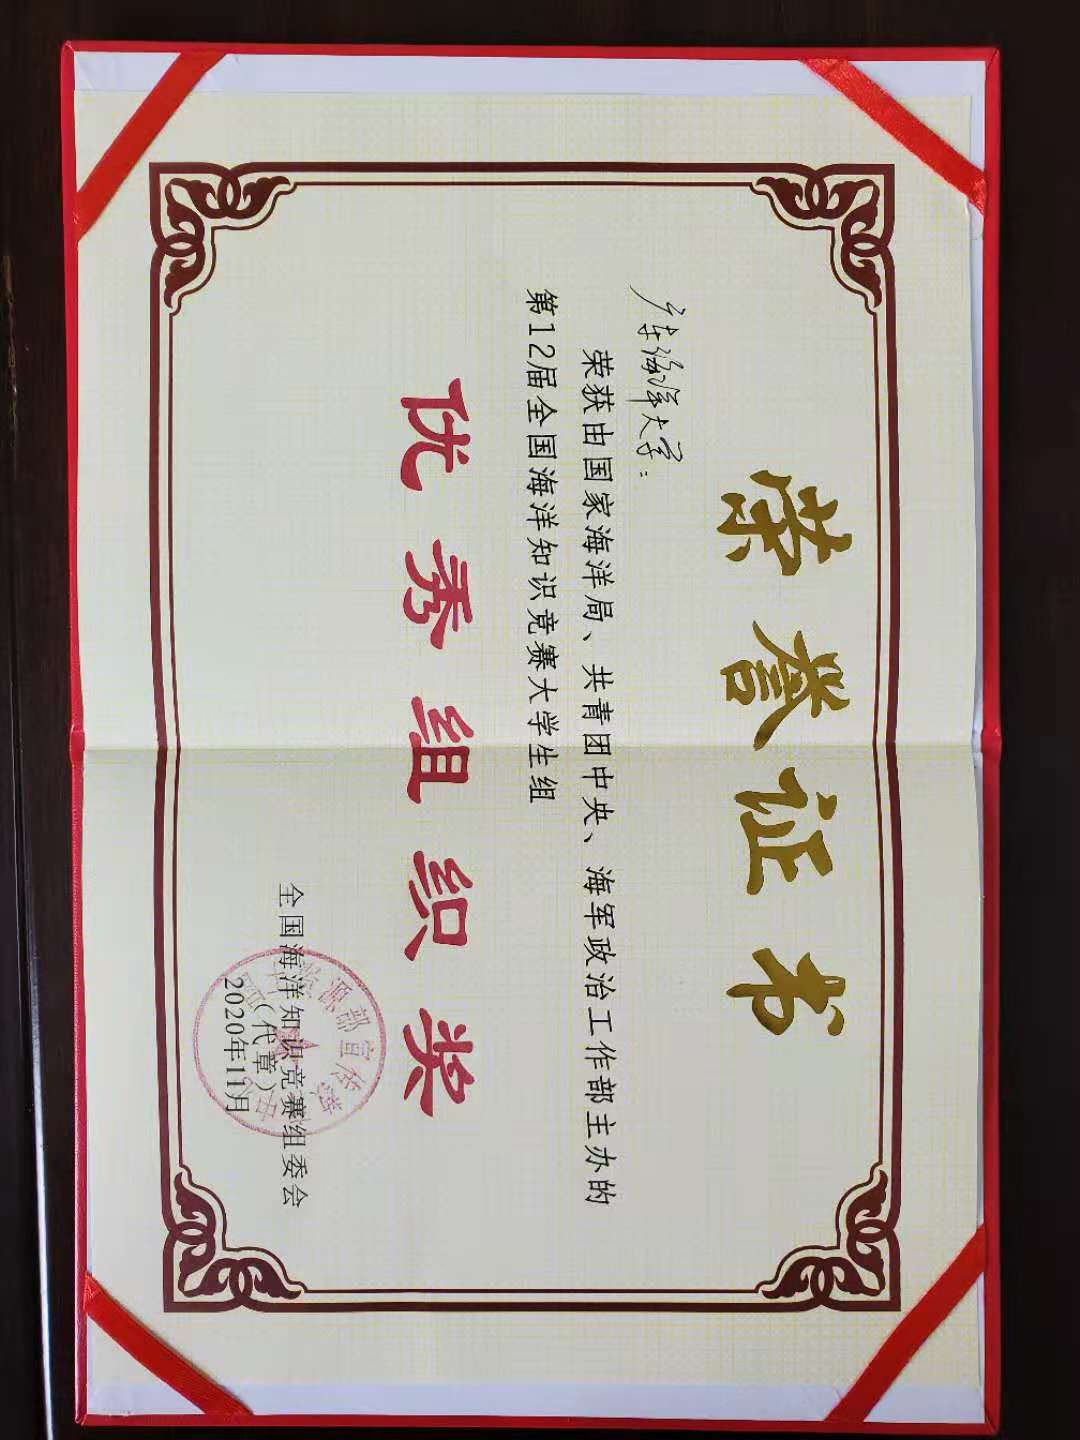 荣誉证书
广东海洋大学:
荣获由国家海洋局、共青团中央、海军政治工作部主办的
第12届全国海洋知识竞赛大学生组
优秀组织奖
全国海洋知识竞赛组委会
(代章)
2020年11月
资源部宣传教